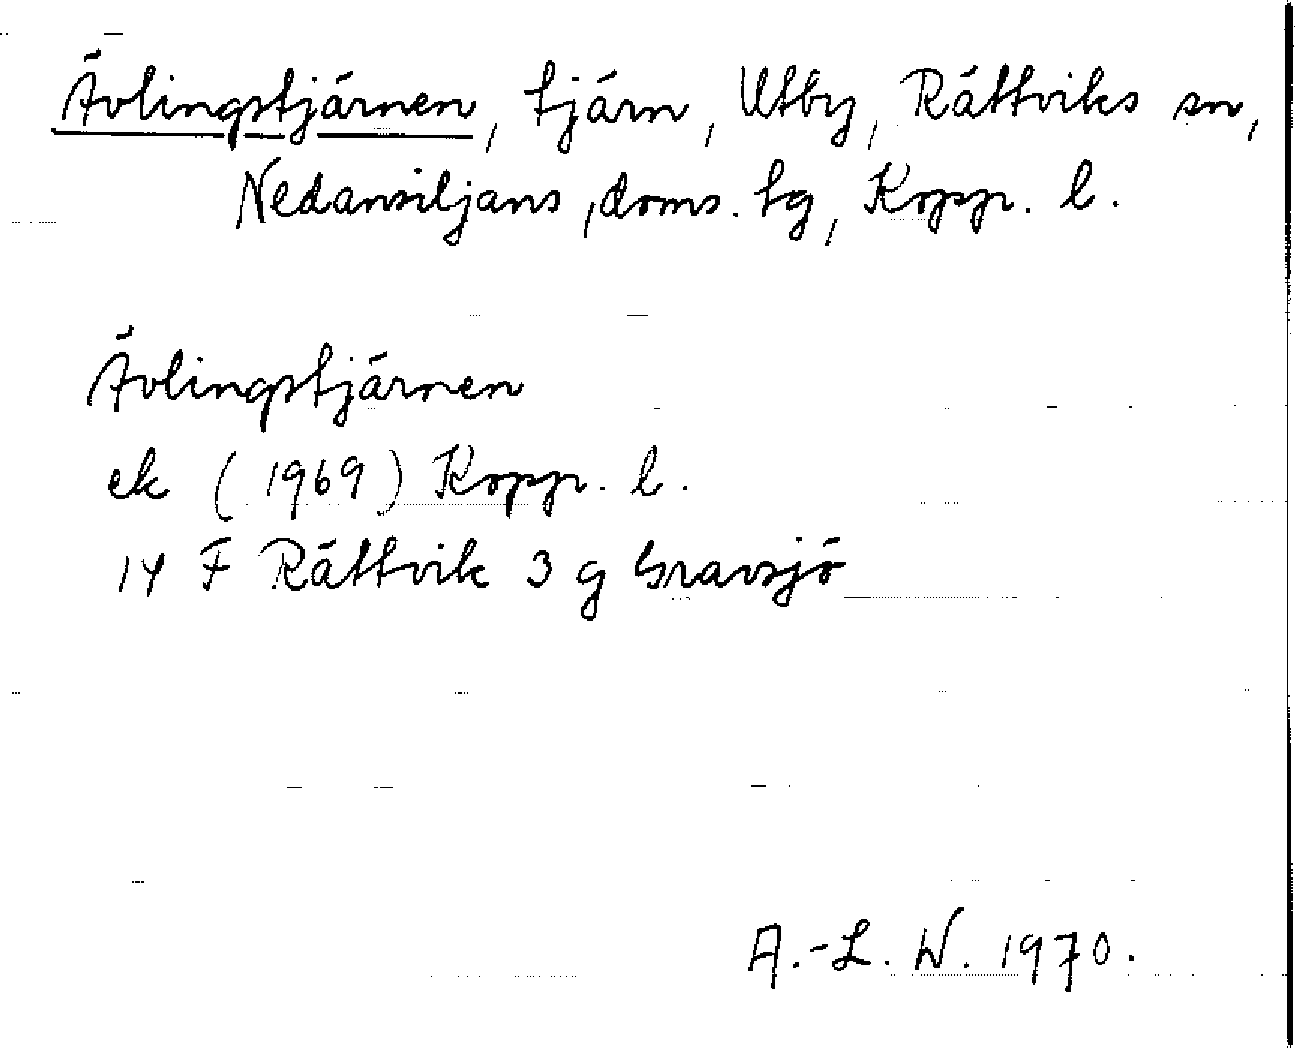 Ävlingstjärnen, tjärn, Utby, Rättviks sn,
Nedansiljans doms. tg, Kopp. l.
Ävlingstjärnen
ek (1969) Kopp. l.
14 F Rättvik 3 g Gravsjö
A.-L. W. 1970.